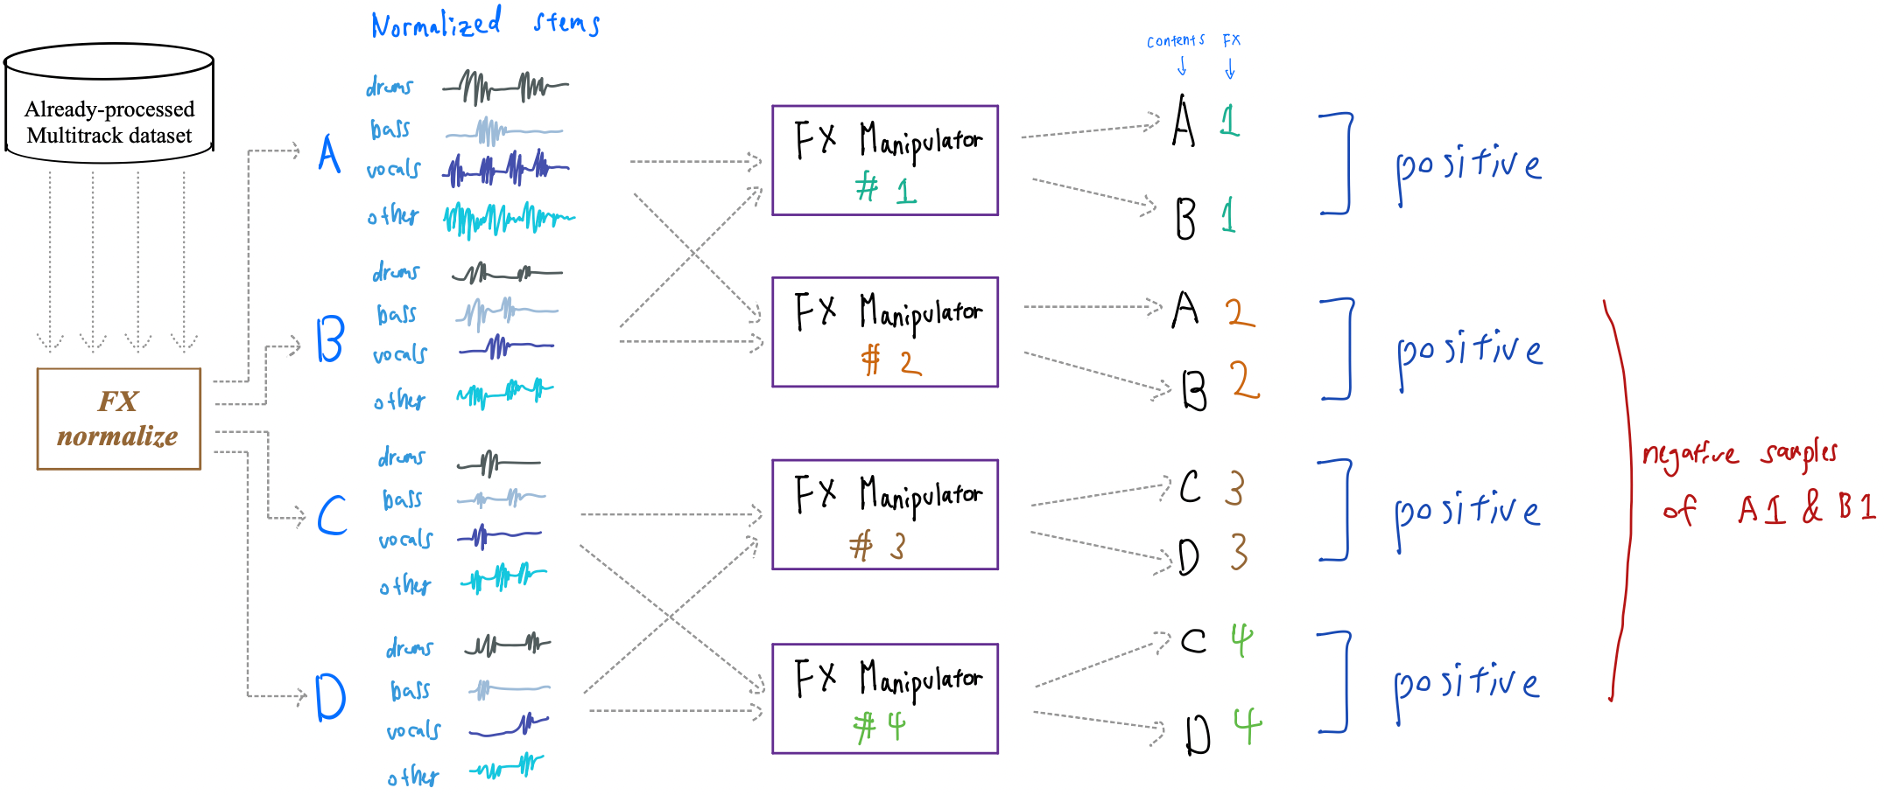 Normalized stems
Already-processed
Multitrack dataset
FX
normalize
A
drums
bass
vocals
other
B
drums
bass
vocals
other
C
drums
bass
vocals
other
D
drums
bass
vocals
other
FX Manipulator
# 1
FX Manipulator
# 2
FX Manipulator
# 3
FX Manipulator
# 4
contents FX
A 1
B 1
positive
A 2
B 2
positive
C 3
D 3
positive
C 4
D 4
positive
negative samples
of A1 & B1